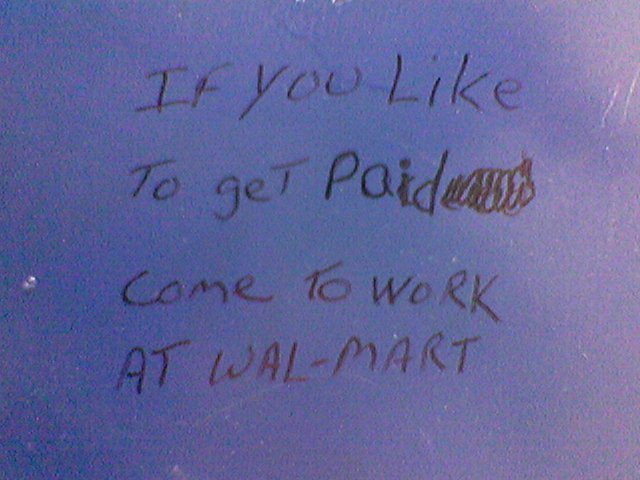 IF YOU LIKE
To geT Paid
Come To WORK
AT WAL-MART